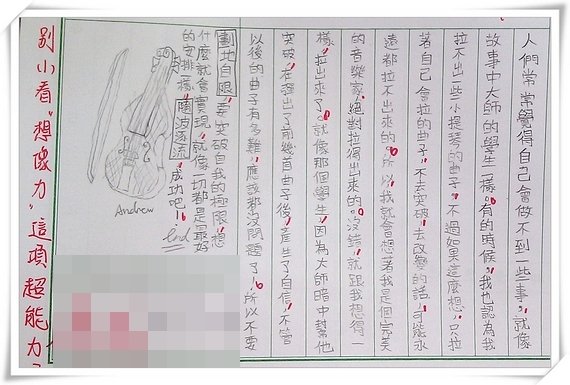 人們常常覺得自己會做不到一些事，就像
故事中大師的學生一樣。有的時候，我也認為我
拉不出一些小提琴的曲子，不過如果這麼想，只拉
著自己會拉的曲子，不去突破，去改變的話，可能永
遠都拉不出來的。所以，我就會想著我是個完美
的音樂家，絕對拉得出來的。沒錯，就跟我想得一
樣，拉出來了。就像那個學生，因為大師暗中幫他
突破，在彈出了前幾首曲子後，產生了自信，不管
以後的曲子有多難，應該都沒問題了。所以不要
劃地自限，要突破自我的極限，想
什麼就會實現，就像一切都是最好
的安排一樣，隨波逐流，成功吧！
End
Andrew
別小看"想像力"這項超能力